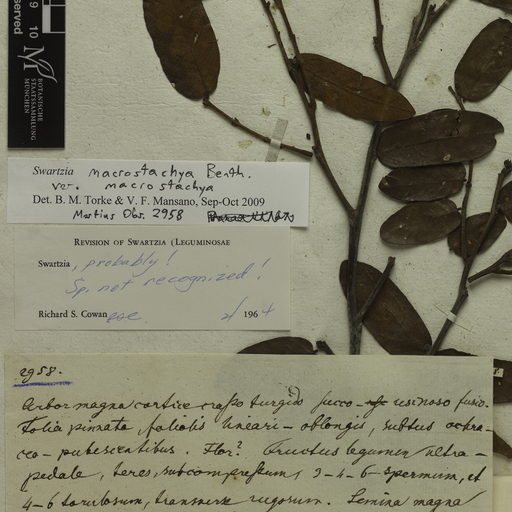 reserved
9 10
BOTANISCHE
STAATSSAMMLUNG
MÜNCHEN
Swartzia macrostachya Benth.
var. macrostachya
Det. B. M. Torke & V. F. Mansano, Sep-Oct 2009
Martius Obs. 2958
REVISION OF SWARTZIA (LEGUMINOSAE
Swartzia, probably!
Sp. not recognized!
Richard S. Cowan 2/ 1964
2958.
Arbor magna cortice crasso turgido succo resinoso fusco.
Folia pinnata, foliolis lineari-oblongis, subtus ochra-
ceo-pubescentibus. Flor? Fructus legumen ultra-
pedale, teres, subcompressum, 3-4-6-spermum, et
4-6 torulosum, transverse rugosum. Semina magna